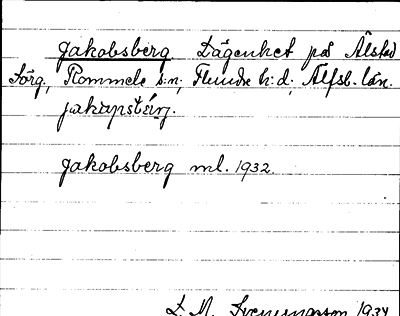 Jakobsberg Lägenhet på Ålstad
Törg., Rommele s:n, Flundre h:d, Älfsb. län.
jakapstärj.
Jakobsberg ml. 1932.
D. M. Svenungsson 1934